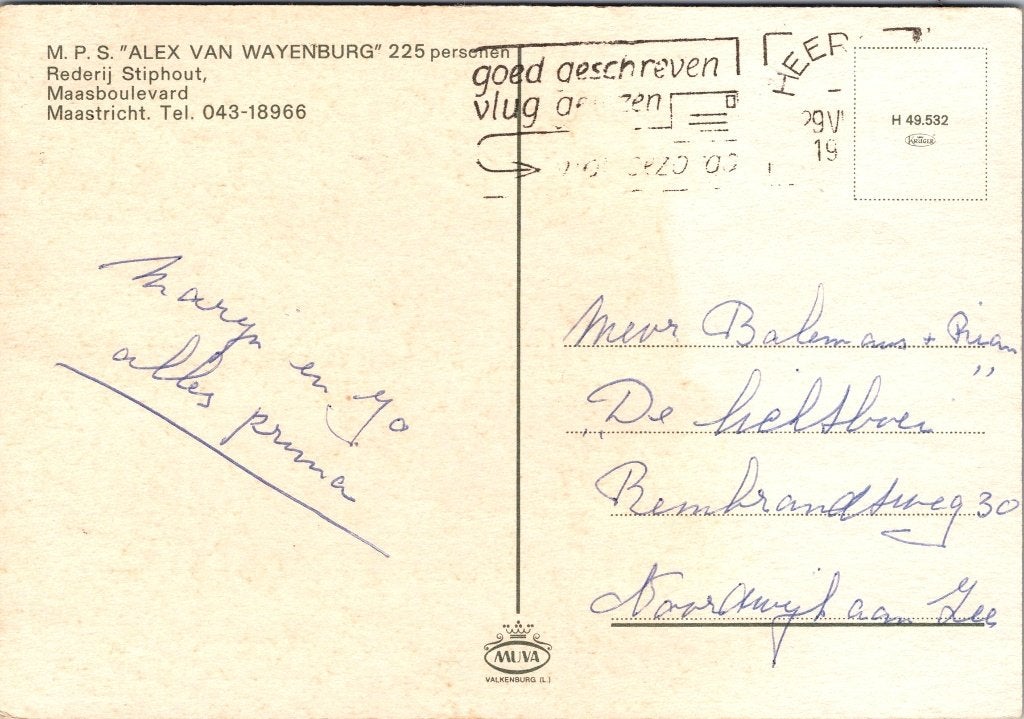 M. P. S. "ALEX VAN WAYENBURG" 225 personen
Rederij Stiphout,
Maasboulevard
Maastricht. Tel. 043-18966
goed geschreven
vlug
HEER
29 VI
19
H 49.532
KRÜGER
Maryn en Jo
alles prima
Mevr Balemans + Rian
"De "
Rembrandtsweg 30
Noordwijk aan Zee
MUVA
VALKENBURG (L.)